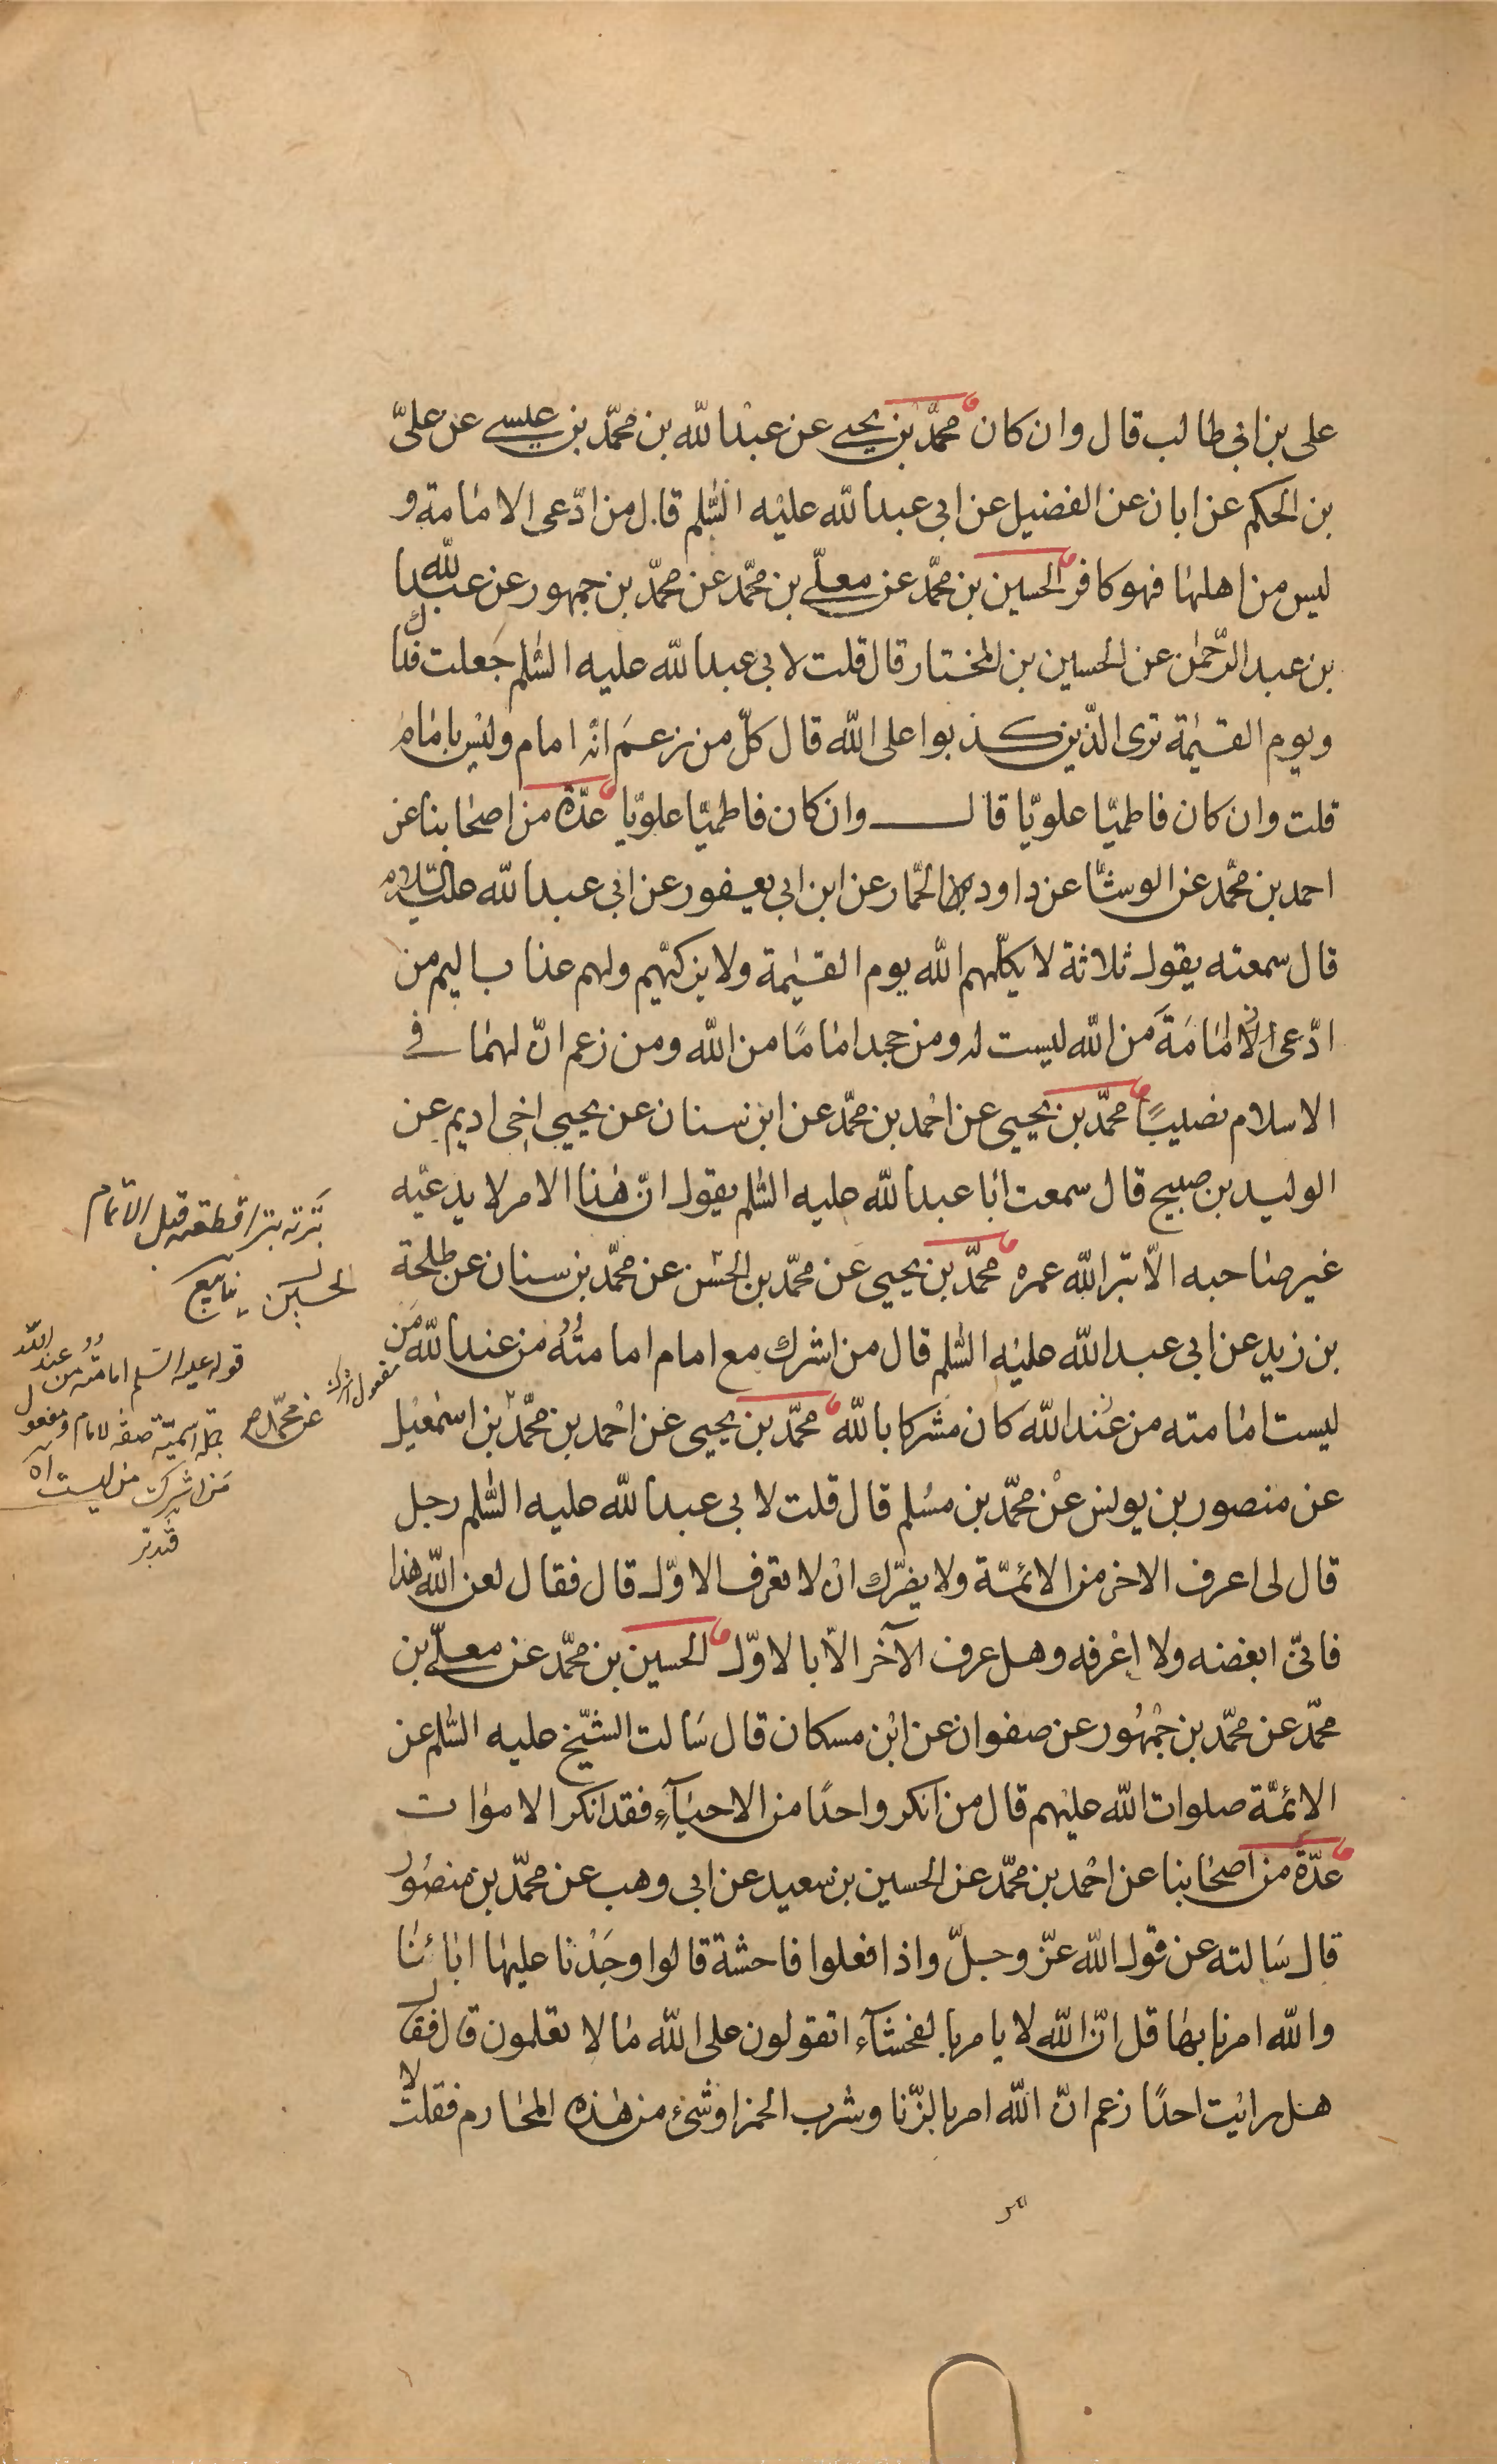 على بن ابى طالب قال وان كان محمّد بن يحيى عن عبد الله بن محمّد بن عيسى عن علىّ
بن الحكم عن ابان عن الفضيل عن ابى عبد الله عليه السّلم قال من ادّعى الامامة و
ليس من اهلها فهو كافر الحسين بن محمّد عن معلّى بن محمّد عن محمّد بن جمهور عن عبد الله
بن عبد الرّحمن عن الحسين بن المختار قال قلت لابى عبد الله عليه السّلم جعلت فداك
ويوم القيمة ترى الّذين كذبوا على الله قال كلّ من زعم انّه امام وليس بامام
قلت وان كان فاطميّا علويّا قال وان كان فاطميّا علويّا عدّة من اصحابنا عن
احمد بن محمّد عن الوشّا عن داود الحمّار عن ابن ابى يعفور عن ابى عبد الله عليه السّلام
قال سمعته يقول ثلاثة لا يكلّمهم الله يوم القيمة ولا يزكّيهم ولهم عذاب اليم من
ادّعى الامامة من الله ليست له ومن جحد اماماً من الله ومن زعم انّ لهما فى
الاسلام نصيباً محمّد بن يحيى عن احمد بن محمّد عن ابن سنان عن يحيى اخى اديم عن
الوليد بن صبيح قال سمعت ابا عبد الله عليه السّلم يقول انّ هذا الامر لا يدعيه
غير صاحبه الّا بتر الله عمره محمّد بن يحيى عن محمّد بن الحسن عن محمّد بن سنان عن طلحة
بن زيد عن ابى عبد الله عليه السّلم قال من اشرك مع امام امامته من عند الله من
ليست امامته من عند الله كان مشركا بالله محمّد بن يحيى عن احمد بن محمّد بن اسمعيل
عن منصور بن يونس عن محمّد بن مسلم قال قلت لابى عبد الله عليه السّلم رجل
قال لى اعرف الاخر من الائمّة ولا يضرّك ان لا تعرف الاوّل قال فقال لعن الله هذا
فانّى ابغضه ولا اعرفه وهل عرف الآخر الّا بالاوّل الحسين بن محمّد عن معلّى بن
محمّد عن محمّد بن جمهور عن صفوان عن ابن مسكان قال سالت الشّيخ عليه السّلم عن
الائمّة صلوات الله عليهم قال من انكر واحداً من الاحيآء فقد انكر الاموات
عدّة من اصحابنا عن احمد بن محمّد عن الحسين بن سعيد عن ابى وهب عن محمّد بن منصور
قال سالته عن قول الله عزّ وجلّ واذا فعلوا فاحشة قالوا وجدنا عليها ابائنا
والله امرنا بها قل انّ الله لا يامر بالفحشآء اتقولون على الله ما لا تعلمون قال فقال
هل رايت احداً زعم انّ الله امر بالزّنا وشرب الخمر او شىء من هذه المحارم فقلت لا
بترته بترا قطعته قبل الاتمام
مفعول اشرك
عن محمّد صح
قوله عليه السّلم امامته من عند الله
جملة اسميّة صفة لامام ومفعول
من اشرك من ليست اه
فتدبّر